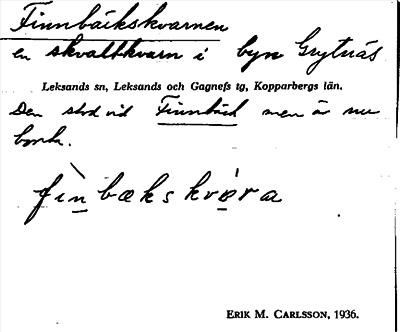 Finnbäckskvarnen
en skvaltkvarn i byn Grytnäs
Leksands sn, Leksands och Gagnefs tg, Kopparbergs län.
Den stod vid Finnbäck men är nu
borta.
fìnbækskvɒ́ra
ERIK M. CARLSSON, 1936.